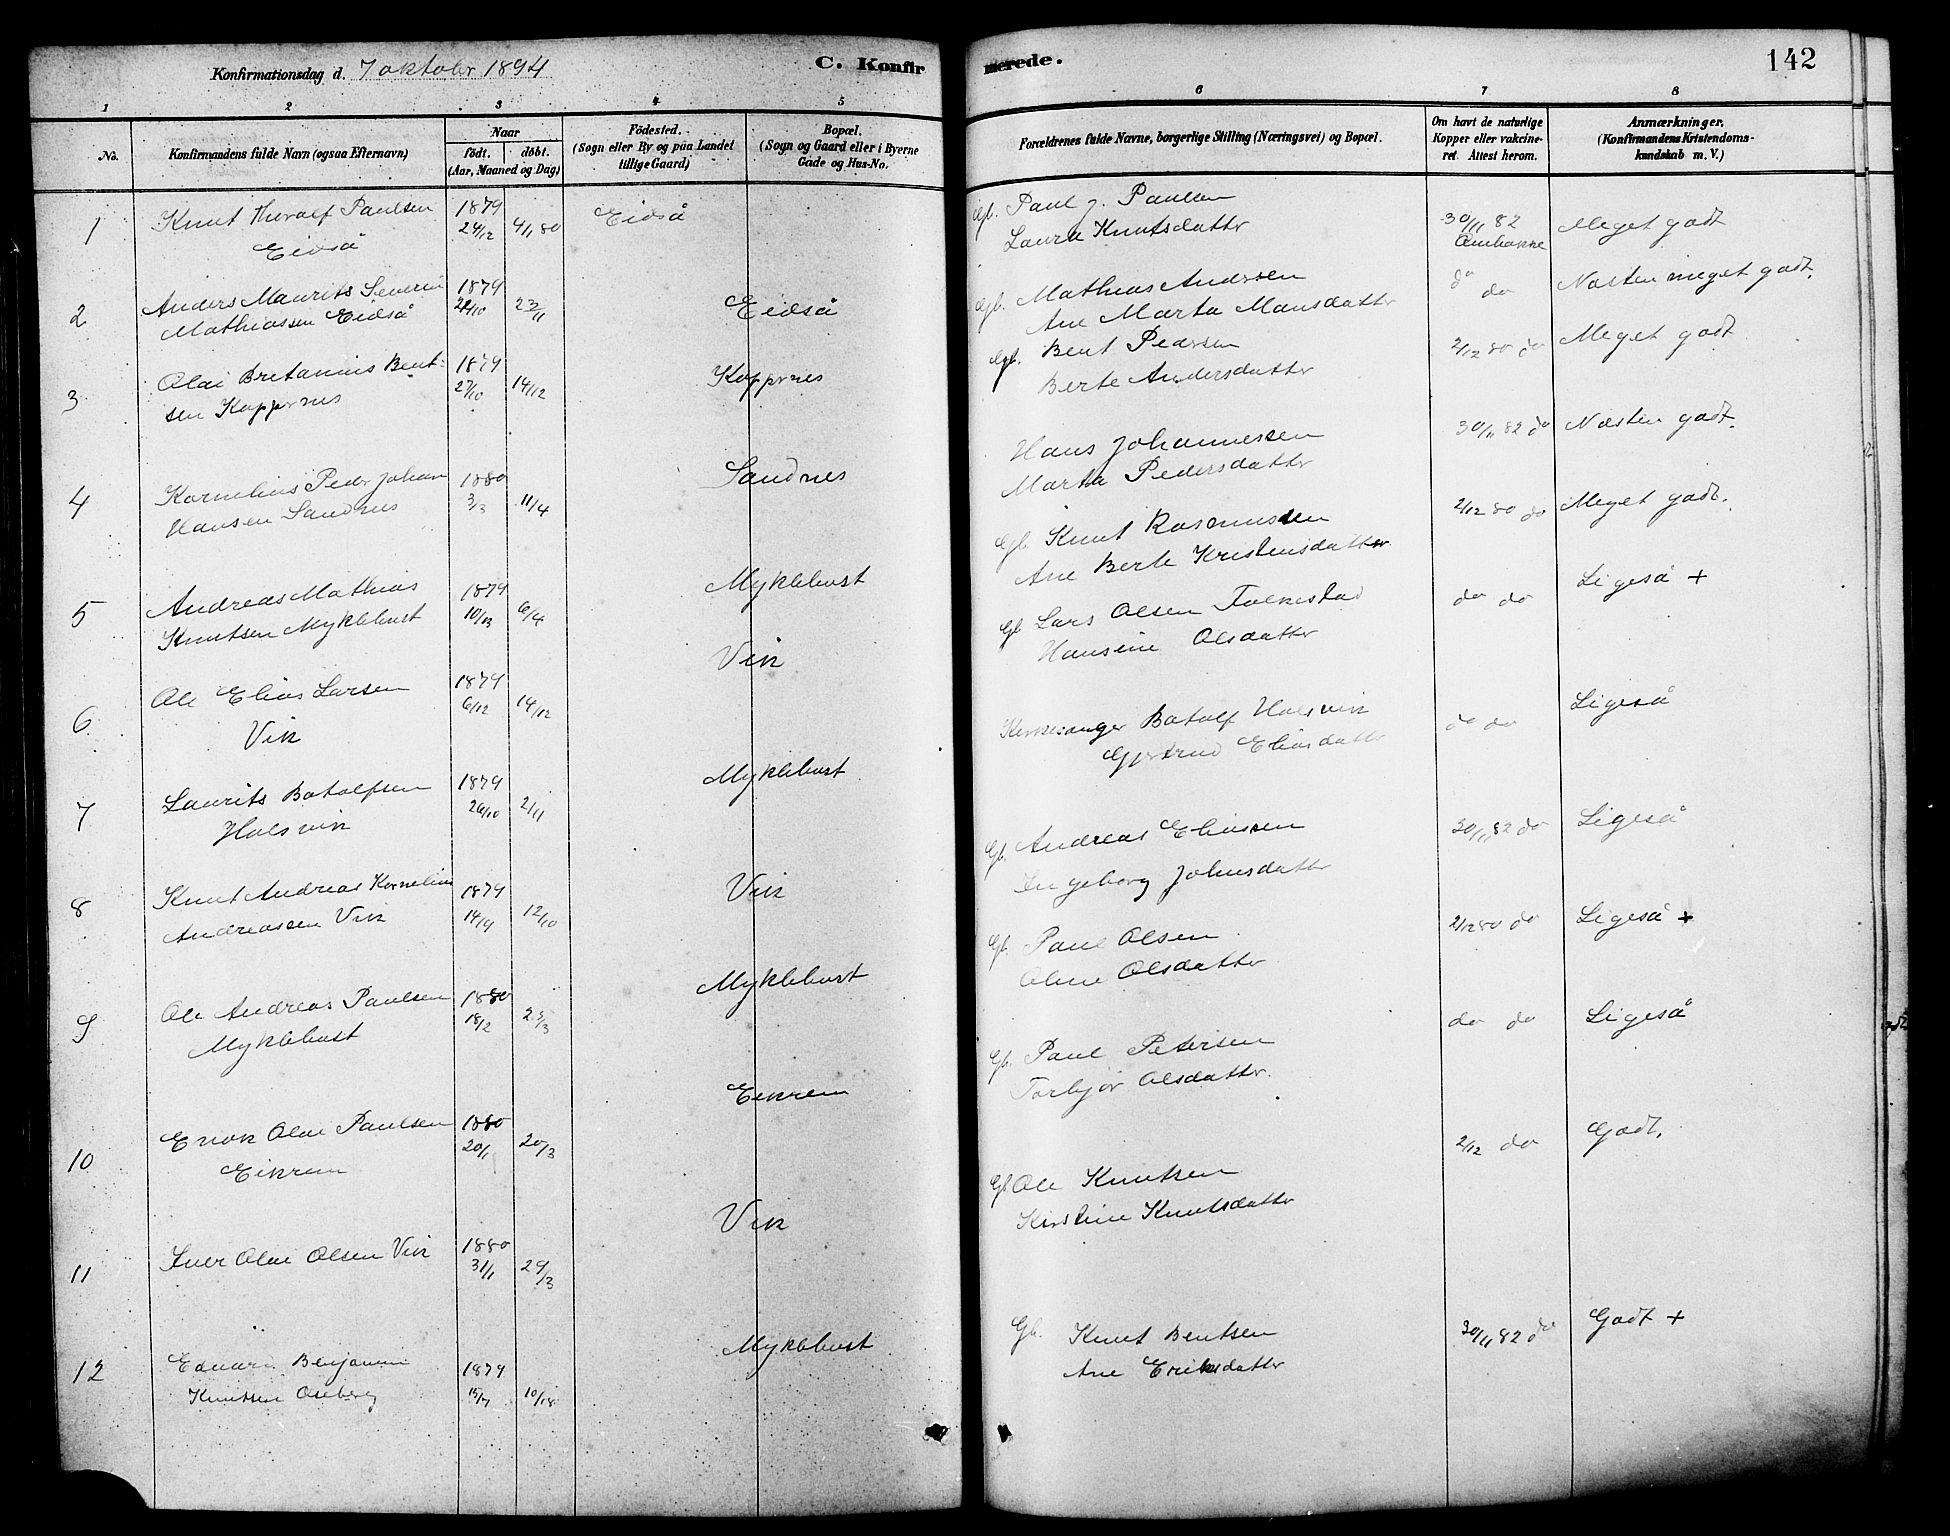 Konfirmationsdag d. 7 oktober 1894
C. Konfirmerede.
142
1 2 3 4 5 6 7 8
No.
Konfirmandens fulde Navn (ogsaa Efternavn)
Naar
födt. döbt.
(Aar, Maaned og Dag)
Födested.
(Sogn eller By og paa Landet
tillige Gaard)
Bopæl.
(Sogn og Gaard eller i Byerne
Gade og Hus-No.
Forældrenes fulde Navne, borgerlige Stilling (Næringsvei) og Bopæl.
Om havt de naturlige
Kopper eller vakcine-
ret. Attest herom.
Anmærkninger.
(Konfirmandens Kristendoms-
kundskab m. V.)
1 Knut Thoralf Paulsen 1879 Eidså Gb. Paul J. Paulsen 30/11 82 Meget godt
Eidså 24/12 4/1 80 Laura Knutsdatter
2 Anders Maurits Severin 1879 Eidså Gb. Mathias Andersen do do Næsten meget godt.
Mathiassen Eidså 24/10 23/11 Ane Marta Mansdatter
3 Olai Bretanius Bent- 1879 Koppernes Gb. Bent Pedersen 2/12 80 do Meget godt
sen Koppernes 27/10 14/12 Berte Andersdatter
4 Kornelius Peder Johan 1880 Sandnes Hans Johannessen 30/11 82 do Næsten godt.
Hansen Sandnes 3/3 11/4 Marta Pedersdatter
5 Andreas Mathias 1879 Myklebust Gb. Knut Rasmussen 2/12 80 do Meget godt.
Knutsen Myklebust 6/4 Ane Berte Kristensdatter
6 Ole Elias Larsen 1879 Vik Gb Lars Olsen Folkestad do do Ligeså +
Vik 6/12 14/12 Hansine Olsdatter
7 Laurits Botolfsen 1879 Myklebust Kirkesanger Botolf Holsvik do do Ligeså
Holsvik 26/10 2/11 Gjertrud Eliasdatter
8 Knut Andreas Kornelius 1879 Vik Gb. Andreas Eliassen 30/11 82 do Ligeså
Andreassen Vik 14/9 12/10 Ingeborg Johnsdatter
9 Ole Andreas Paulsen 1880 Myklebust Gb. Paul Olsen 2/12 80 do Ligeså +
Myklebust 18/2 Oline Olsdatter
10 Enok Olai Paulsen 1880 Eikrem Gb. Paul Petersen do do Ligeså
Eikrem 20/1 20/3 Torbjør Olsdatter.
11 Iver Olai Olsen Vik 1880 Vik Gb Ole Knutsen 2/12 do Godt.
31/1 29/3 Kirstine Knutsdatter
12 Edvard Benjamin 1879 Myklebust Gb. Knut Bentsen 30/11 82 do Godt +
Knutsen Åseberg 15/7 Ane Eriksdatter